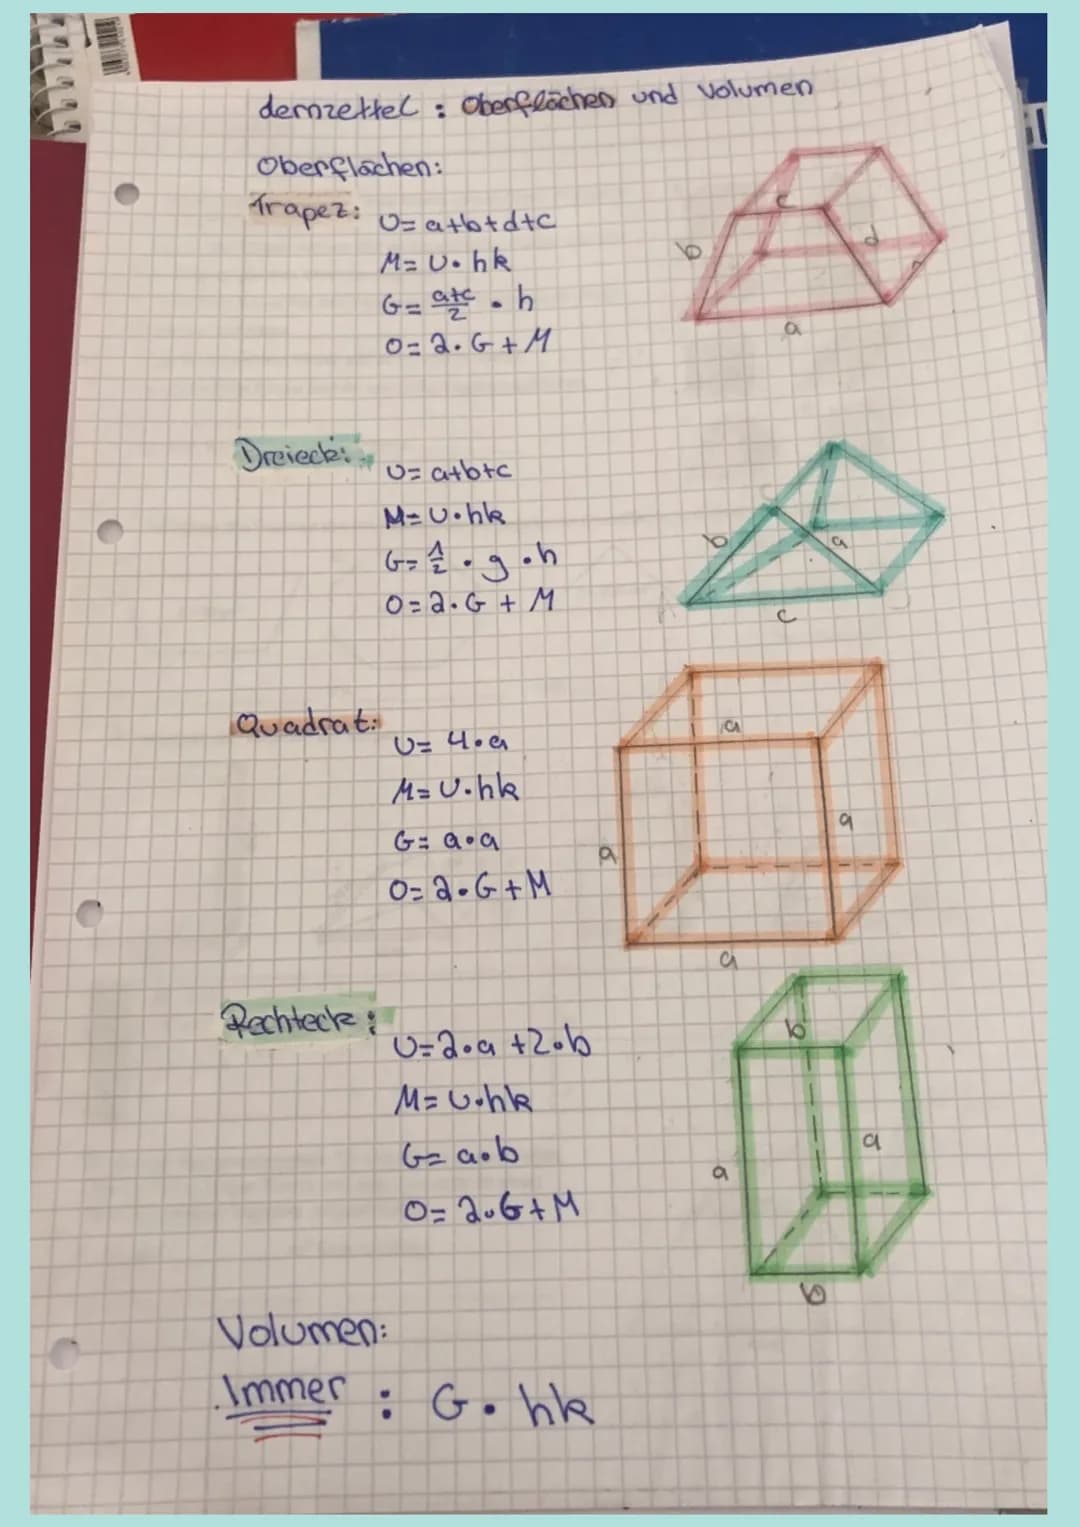 Lernzettel : Oberflächen und Volumen
Oberflächen:
Trapez:
U= a+b+d+c
M= U · hk
G= a+c/2 · h
O= 2 · G + M
c
b
d
h
a
Dreieck:
U= a+b+c
M= U · hk
G= 1/2 · g · h
O= 2 · G + M
b
a
c
Quadrat:
U= 4 · a
M= U · hk
G= a · a
O= 2 · G + M
a
a
a
a
Rechteck:
U= 2 · a + 2 · b
M= U · hk
G= a · b
O= 2 · G + M
b
a
a
b
Volumen:
Immer : G · hk